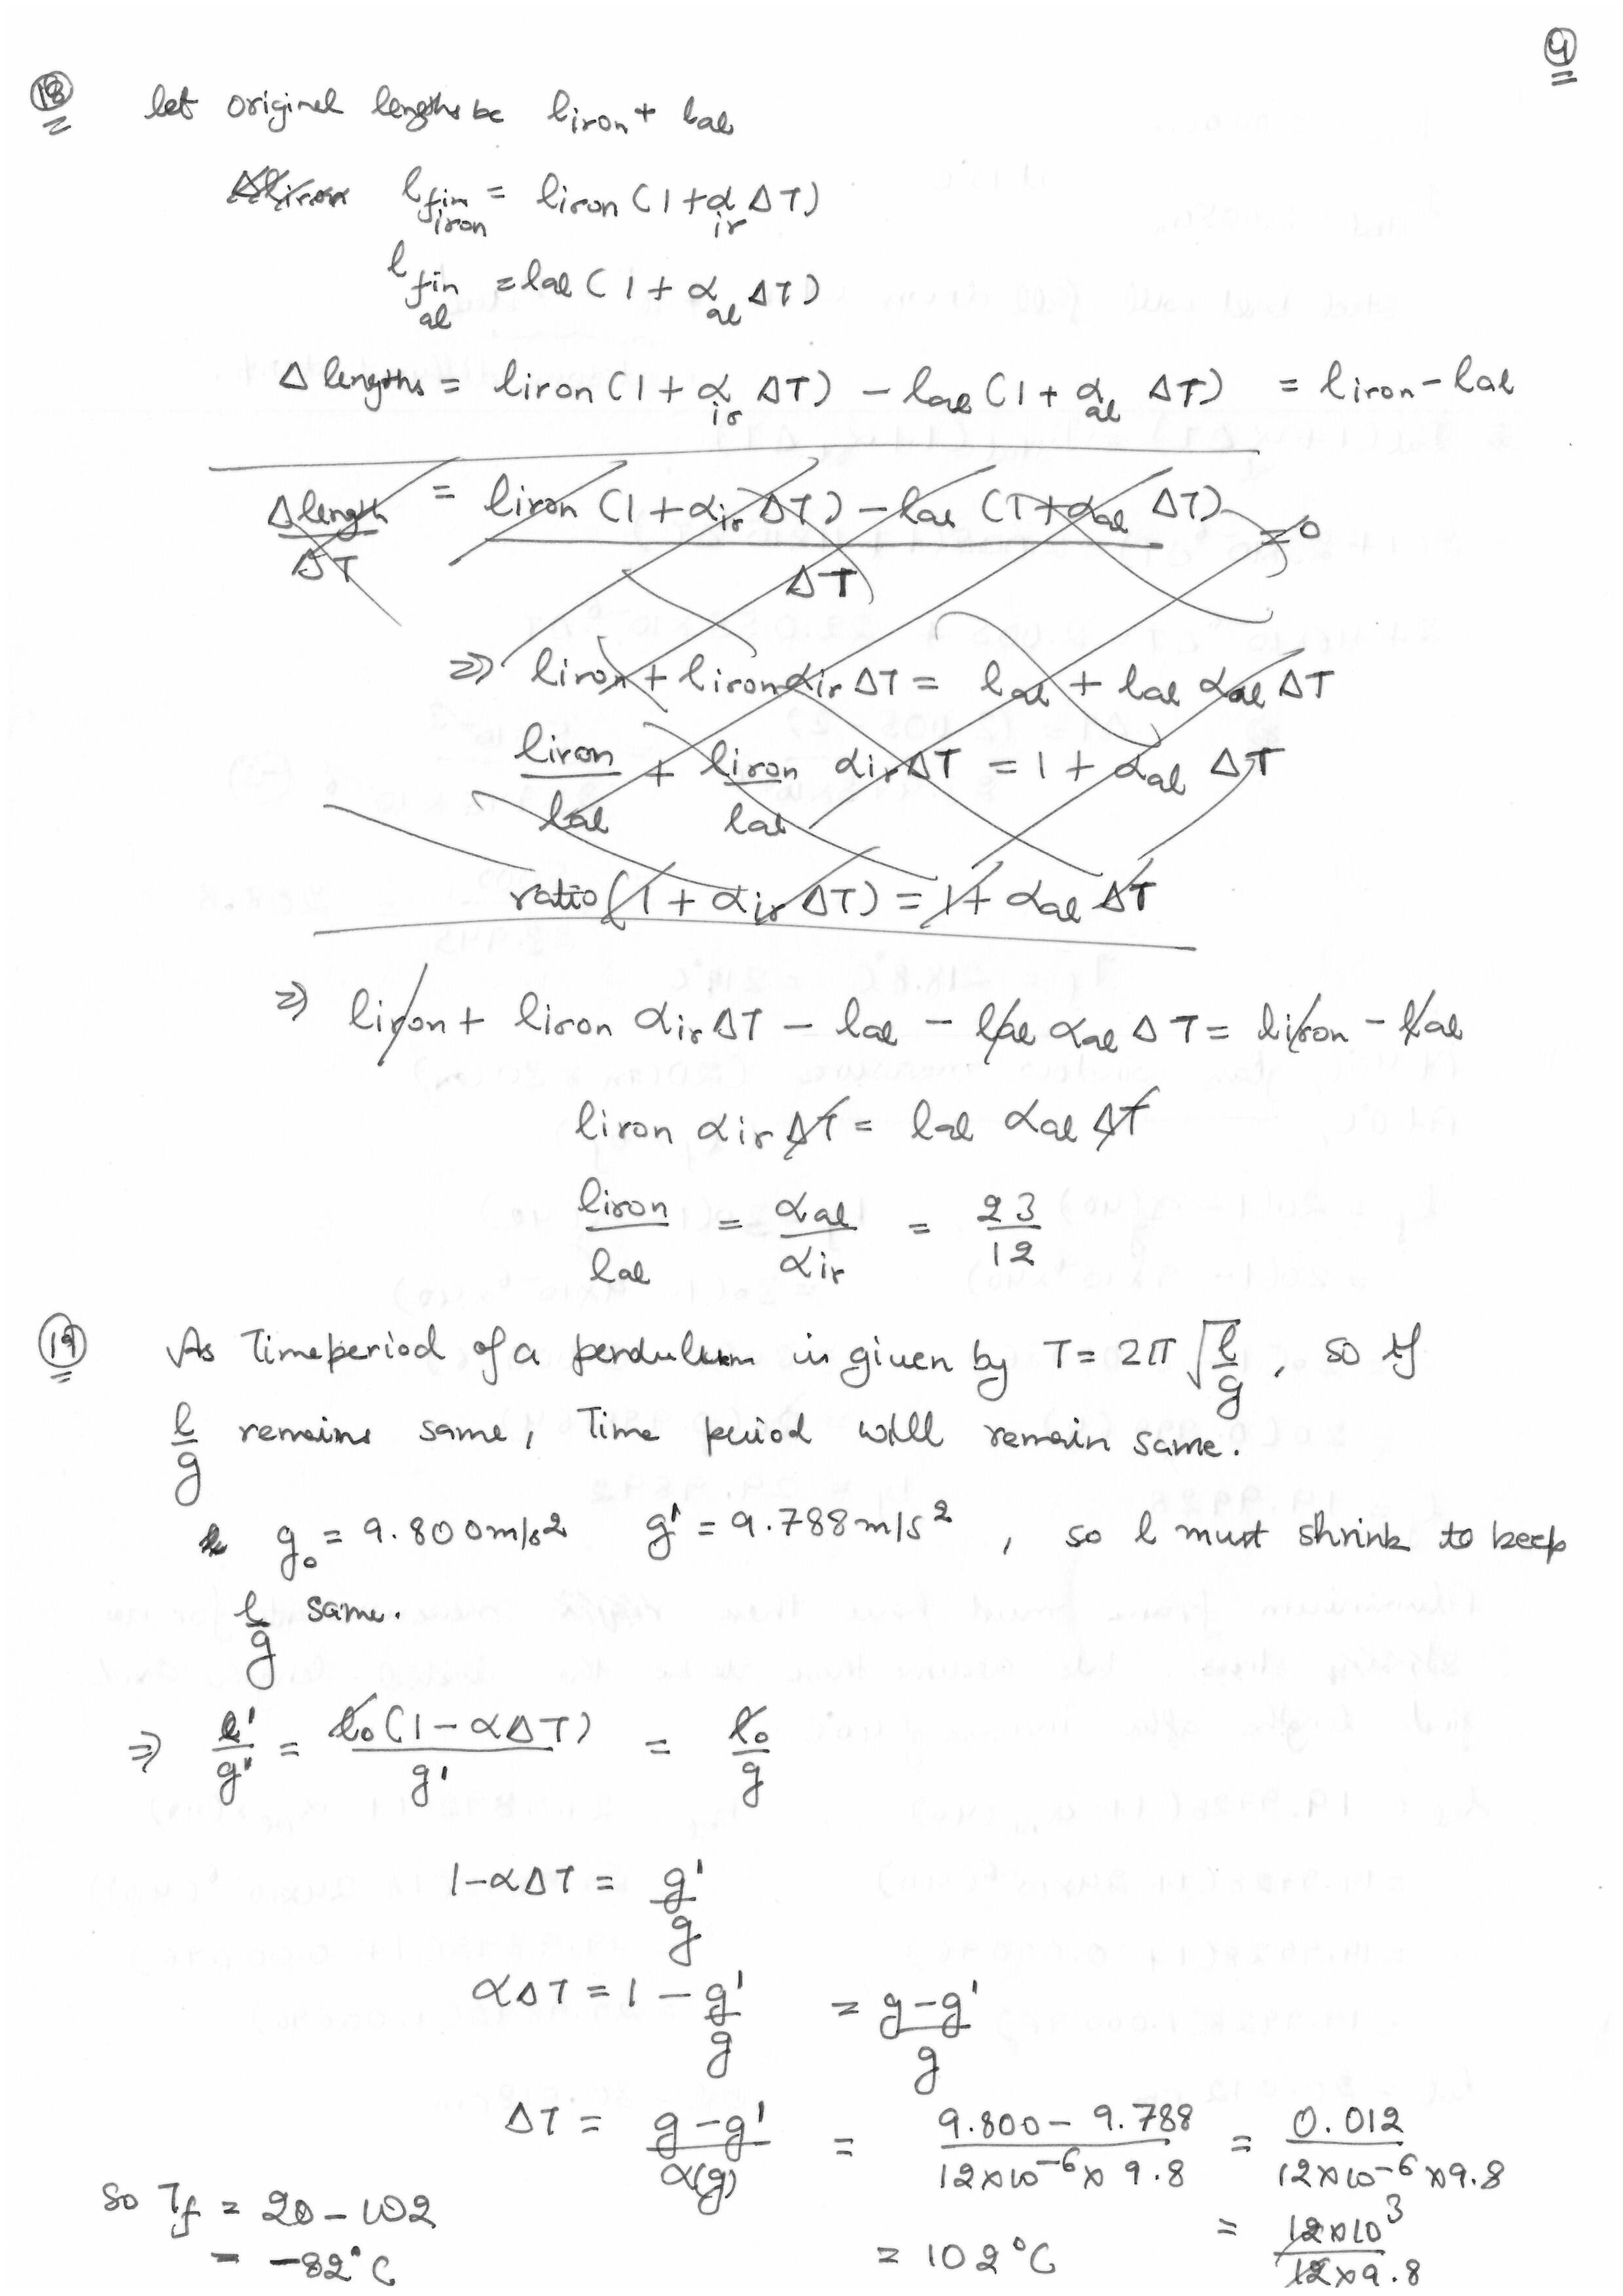 9
18 let original lengths be liron + lal
l fin iron = liron (1 + α ir ΔT)
l fin al = lal (1 + α al ΔT)
Δ lengths = liron (1 + α ir ΔT) - lal (1 + α al ΔT) = liron - lal
Δ length / ΔT = liron (1 + αir ΔT) - lal (1 + αal ΔT) / ΔT = 0
⇒ liron + liron αir ΔT = lal + lal αal ΔT
liron / lal + liron / lal αir ΔT = 1 + αal ΔT
ratio (1 + αir ΔT) = 1 + αal ΔT
⇒ liron + liron αir ΔT - lal - lal αal ΔT = liron - lal
liron αir ΔT = lal αal ΔT
liron / lal = αal / αir = 23 / 12
19 As Timeperiod of a pendulum is given by T = 2π √(l/g), so if
l/g remains same, Time period will remain same.
g₀ = 9.800 m/s² g' = 9.788 m/s², so l must shrink to keep
l/g same.
⇒ l'/g' = l₀(1 - αΔT) / g' = l₀ / g
1 - αΔT = g' / g
αΔT = 1 - g' / g = g - g' / g
ΔT = g - g' / α(g) = 9.800 - 9.788 / 12×10⁻⁶ × 9.8 = 0.012 / 12×10⁻⁶ × 9.8
= 12×10³ / 12×9.8
= 102°C
So Tf = 20 - 102
= -82°C